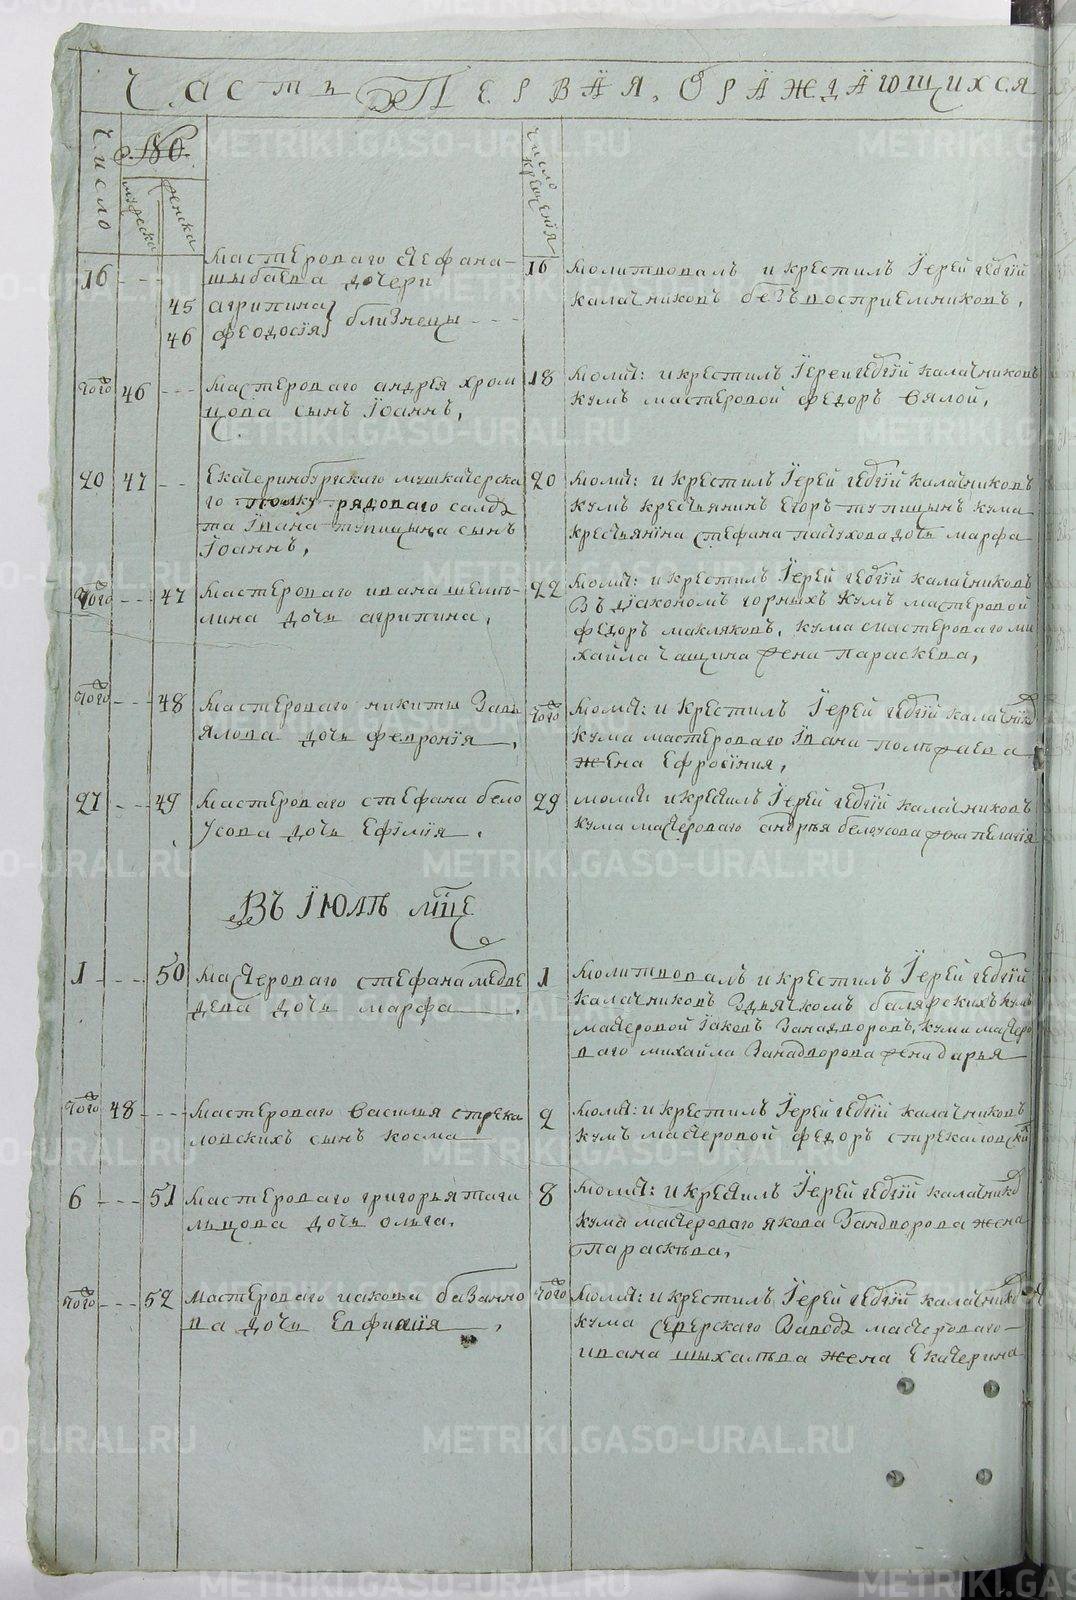 Часть Первая, о раждающихся
Число
№
мужеска
женска
число крещенїя
16 мастероваго стефана
шыбаева дочери
45 агрипина
46 феодосїя близнецы
16 молитвовалъ и крестилъ Їерей геѡргїй
калачниковъ безъ восприемниковъ,
того 46 мастероваго андрея хром
цова сынъ Їоаннъ,
18 молит: и крестилъ Їерей геѡргїй калачниковъ
кумъ мастеровой федоръ вялой,
20 47 Екатеринбургскаго мушкатерска
го полку рядоваго салда
та Ївана тупицына сынъ
Їоаннъ,
20 молит: и крестилъ Їерей геѡргїй калачниковъ
кумъ крестьянинъ Егоръ тупицынъ кума
крестьянина стефана пастухова дочь марфа
того 47 мастероваго ивана шемя-
лина дочь агрипина,
22 молит: и крестилъ Їерей геѡргїй калачниковъ
Въ дїакономъ горныхъ кумъ мастеровой
федоръ макляковъ, кума мастероваго ми
хайла чащина жена параскева,
того 48 мастероваго никиты Завь
ялова дочь феврониїя,
того молит: и крестилъ Їерей геѡргїй калачников
кума мастероваго Ївана
жена Ефросїния,
27 49 мастероваго стефана бело
усова дочь Ефїмїя,
29 молит: и крестилъ Їерей геѡргїй калачниковъ
кума мастероваго андрья белоусова жена пелагїя
Въ Їюлѣ мцѣ
1 50 мастероваго стефана медве
дева дочь марфа,
1 молитвовалъ и крестилъ Їерей геѡргїй
калачниковъ Здьячкомъ балярскихъ кумъ
мастеровой Їаковъ Занадворовъ, кума мастеро
ваго михайла Занадворова жена дарья
того 48 мастероваго василья стрека
ловскихъ сынъ косма
2 молит: и крестилъ Їерей геѡргїй калачниковъ
кумъ мастеровой федоръ стрекаловской
6 51 мастероваго григорья таги
льцова дочь ольга,
8 молит: и крестилъ Їерей геѡргїй калачников
кума мастероваго якова Занадворова жена
Параскѣва,
того 52 мастероваго иакова базанно
ва дочь Евфимїя,
того молит: и крестилъ Їерей геѡргїй калачников
кума северскаго Завода мастероваго
ивана шыхалѣва жена Екатерина
METRIKI.GASO-URAL.RU